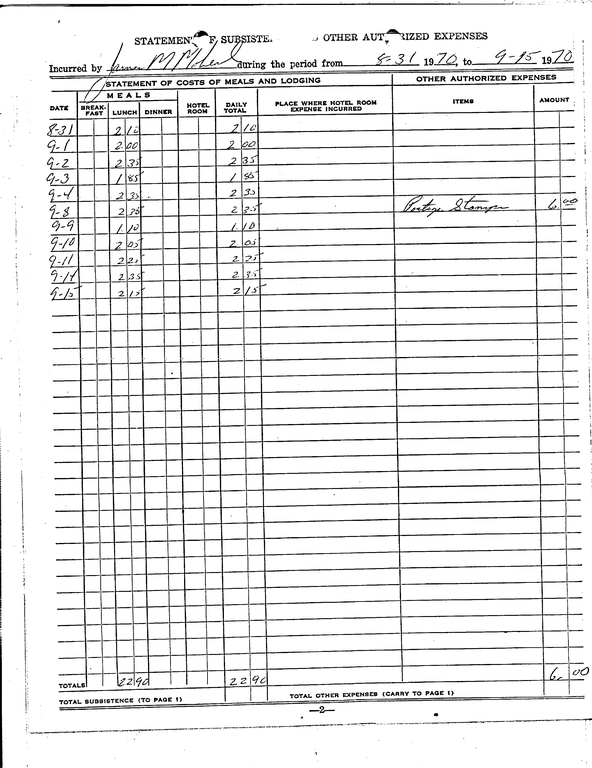 STATEMENT F SUBSISTE. OTHER AUT RIZED EXPENSES
Incurred by James M during the period from 8-31 1970, to 9-15 1970
STATEMENT OF COSTS OF MEALS AND LODGING OTHER AUTHORIZED EXPENSES
MEALS
DATE BREAK-FAST LUNCH DINNER HOTEL ROOM DAILY TOTAL PLACE WHERE HOTEL ROOM EXPENSE INCURRED ITEMS AMOUNT
8-31 2 10 2 10
9-1 2 00 2 00
9-2 2 35 2 35
9-3 1 85 1 85
9-4 2 35 2 35
9-8 2 35 2 35 Postage Stamps 6.00
9-9 1.10 1.10
9-10 2 05 2 05
9-11 2 25 2 25
9-14 2 35 2 35
9-15 2 15 2 15
TOTALS 22 90 22 90 6.00
TOTAL SUBSISTENCE (TO PAGE 1) TOTAL OTHER EXPENSES (CARRY TO PAGE 1)
—2—